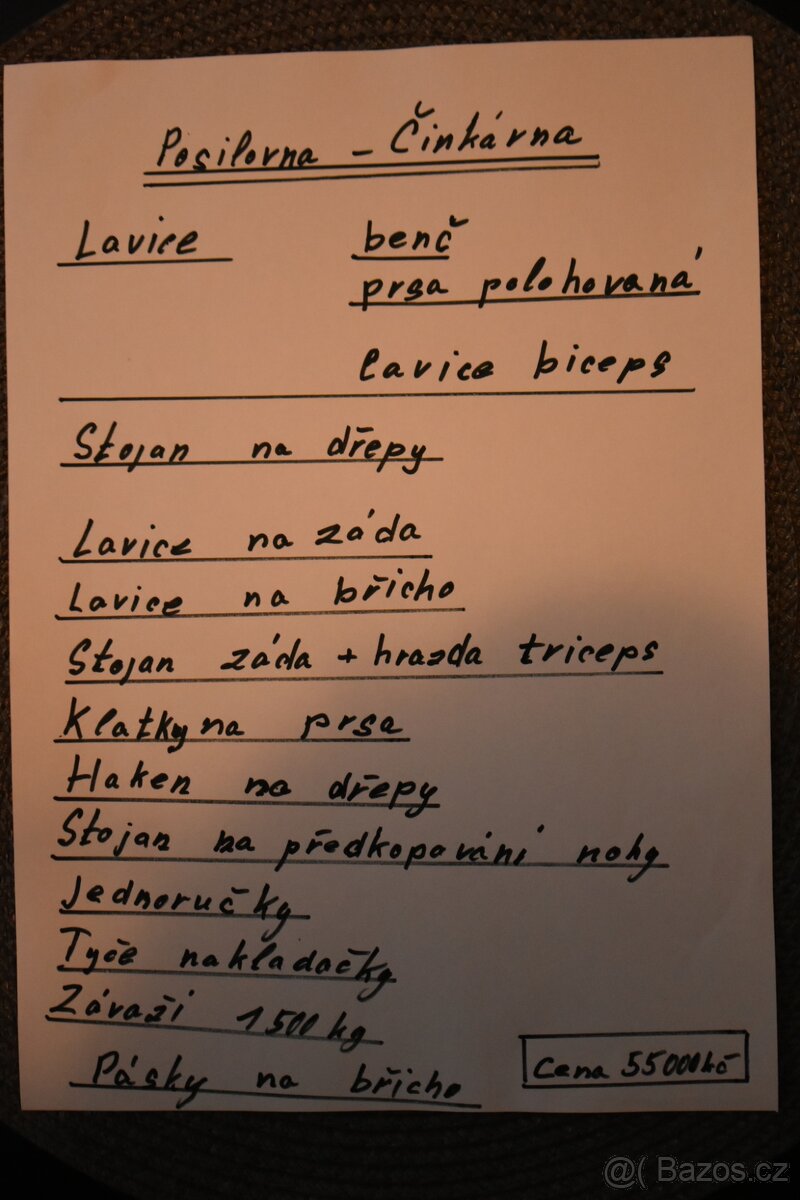 Posilovna - Činkárna
Lavice benč
prsa polohovaná
lavice biceps
Stojan na dřepy
Lavice na záda
Lavice na břicho
Stojan záda + hrazda triceps
Klatky na prsa
Haken na dřepy
Stojan na předkopávání nohy
Jednoručky
Tyče nakladačky
Závaží 1500 kg
Pásky na břicho
Cena 55000kč
@( Bazos.cz